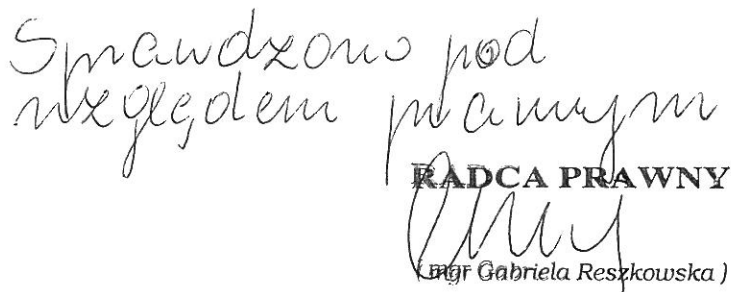 Sprawdzono pod
względem prawnym
RADCA PRAWNY
(mgr Gabriela Reszkowska)